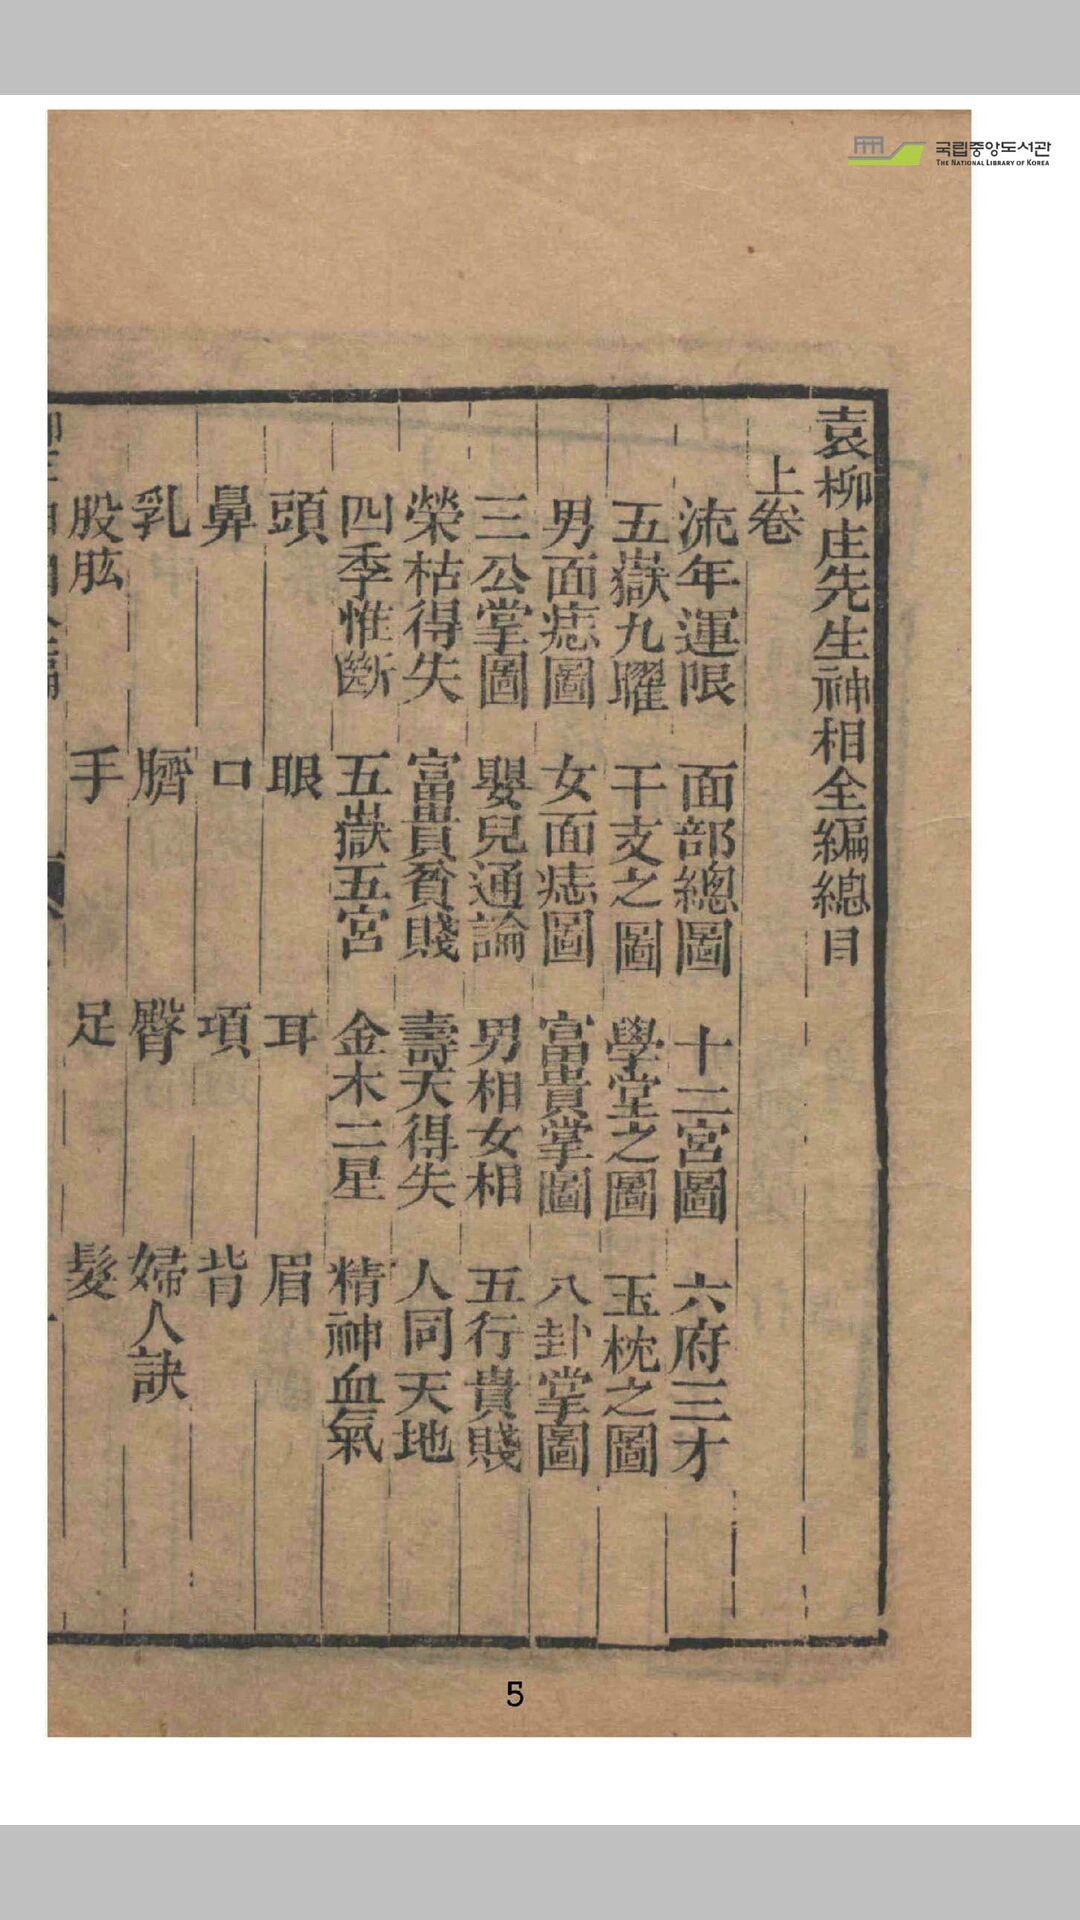 국립중앙도서관
THE NATIONAL LIBRARY OF KOREA
袁柳庄先生神相全編總目
上卷
流年運限 面部總圖 十二宮圖 六府三才
五嶽九曜 干支之圖 學堂之圖 玉枕之圖
男面痣圖 女面痣圖 富貴掌圖 八卦掌圖
三公掌圖 嬰兒通論 男相女相 五行貴賤
榮枯得失 富貴貧賤 壽夭得失 人同天地
四季惟斷 五嶽五宮 金木二星 精神血氣
頭 眼 耳 眉
鼻 口 項 背
乳 臍 臀 婦人訣
股肱 手 足 髮
5